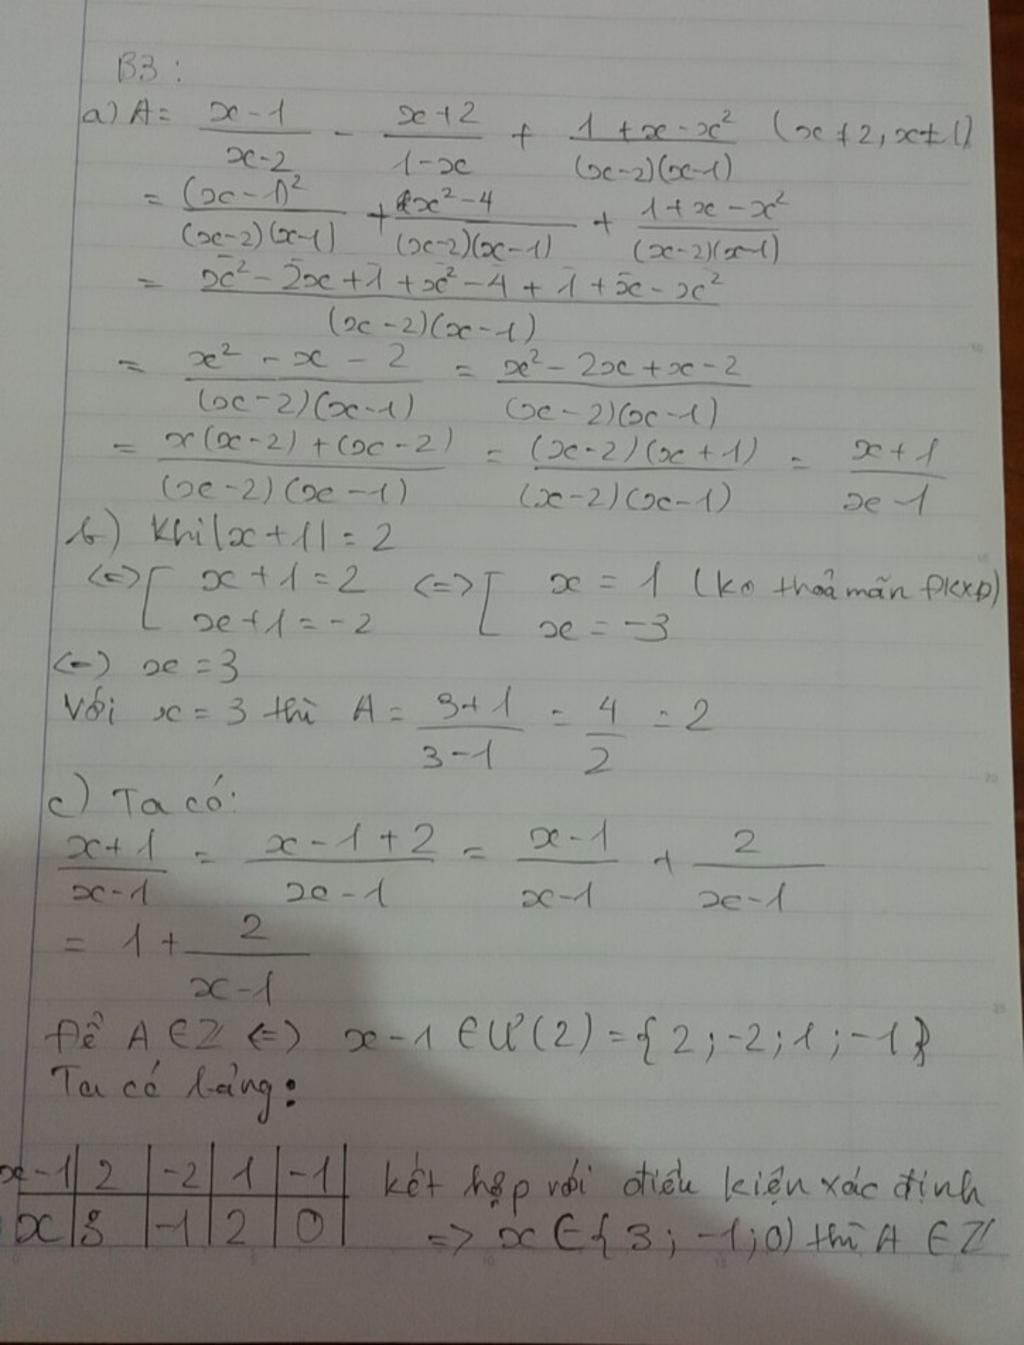 B3 :
a) A = \frac{x-1}{x-2} - \frac{x+2}{1-x} + \frac{1+x-x^2}{(x-2)(x-1)} (x ≠ 2, x ≠ 1)
= \frac{(x-1)^2}{(x-2)(x-1)} + \frac{x^2-4}{(x-2)(x-1)} + \frac{1+x-x^2}{(x-2)(x-1)}
= \frac{x^2-2x+1+x^2-4+1+x-x^2}{(x-2)(x-1)}
= \frac{x^2-x-2}{(x-2)(x-1)} = \frac{x^2-2x+x-2}{(x-2)(x-1)}
= \frac{x(x-2)+(x-2)}{(x-2)(x-1)} = \frac{(x-2)(x+1)}{(x-2)(x-1)} = \frac{x+1}{x-1}
b) Khi |x+1| = 2
<=> [ x+1=2 <=> [ x = 1 (ko thoả mãn ĐKXĐ)
x+1=-2 x = -3
<=> x = 3
Với x = 3 thì A = \frac{3+1}{3-1} = \frac{4}{2} = 2
c) Ta có:
\frac{x+1}{x-1} = \frac{x-1+2}{x-1} = \frac{x-1}{x-1} + \frac{2}{x-1}
= 1 + \frac{2}{x-1}
Để A ∈ Z <=> x-1 ∈ Ư(2) = {2;-2;1;-1}
Ta có bảng:
x-1 | 2 | -2 | 1 | -1 | kết hợp với điều kiện xác định
x | 3 | -1 | 2 | 0 | => x ∈ {3; -1; 0) thì A ∈ Z